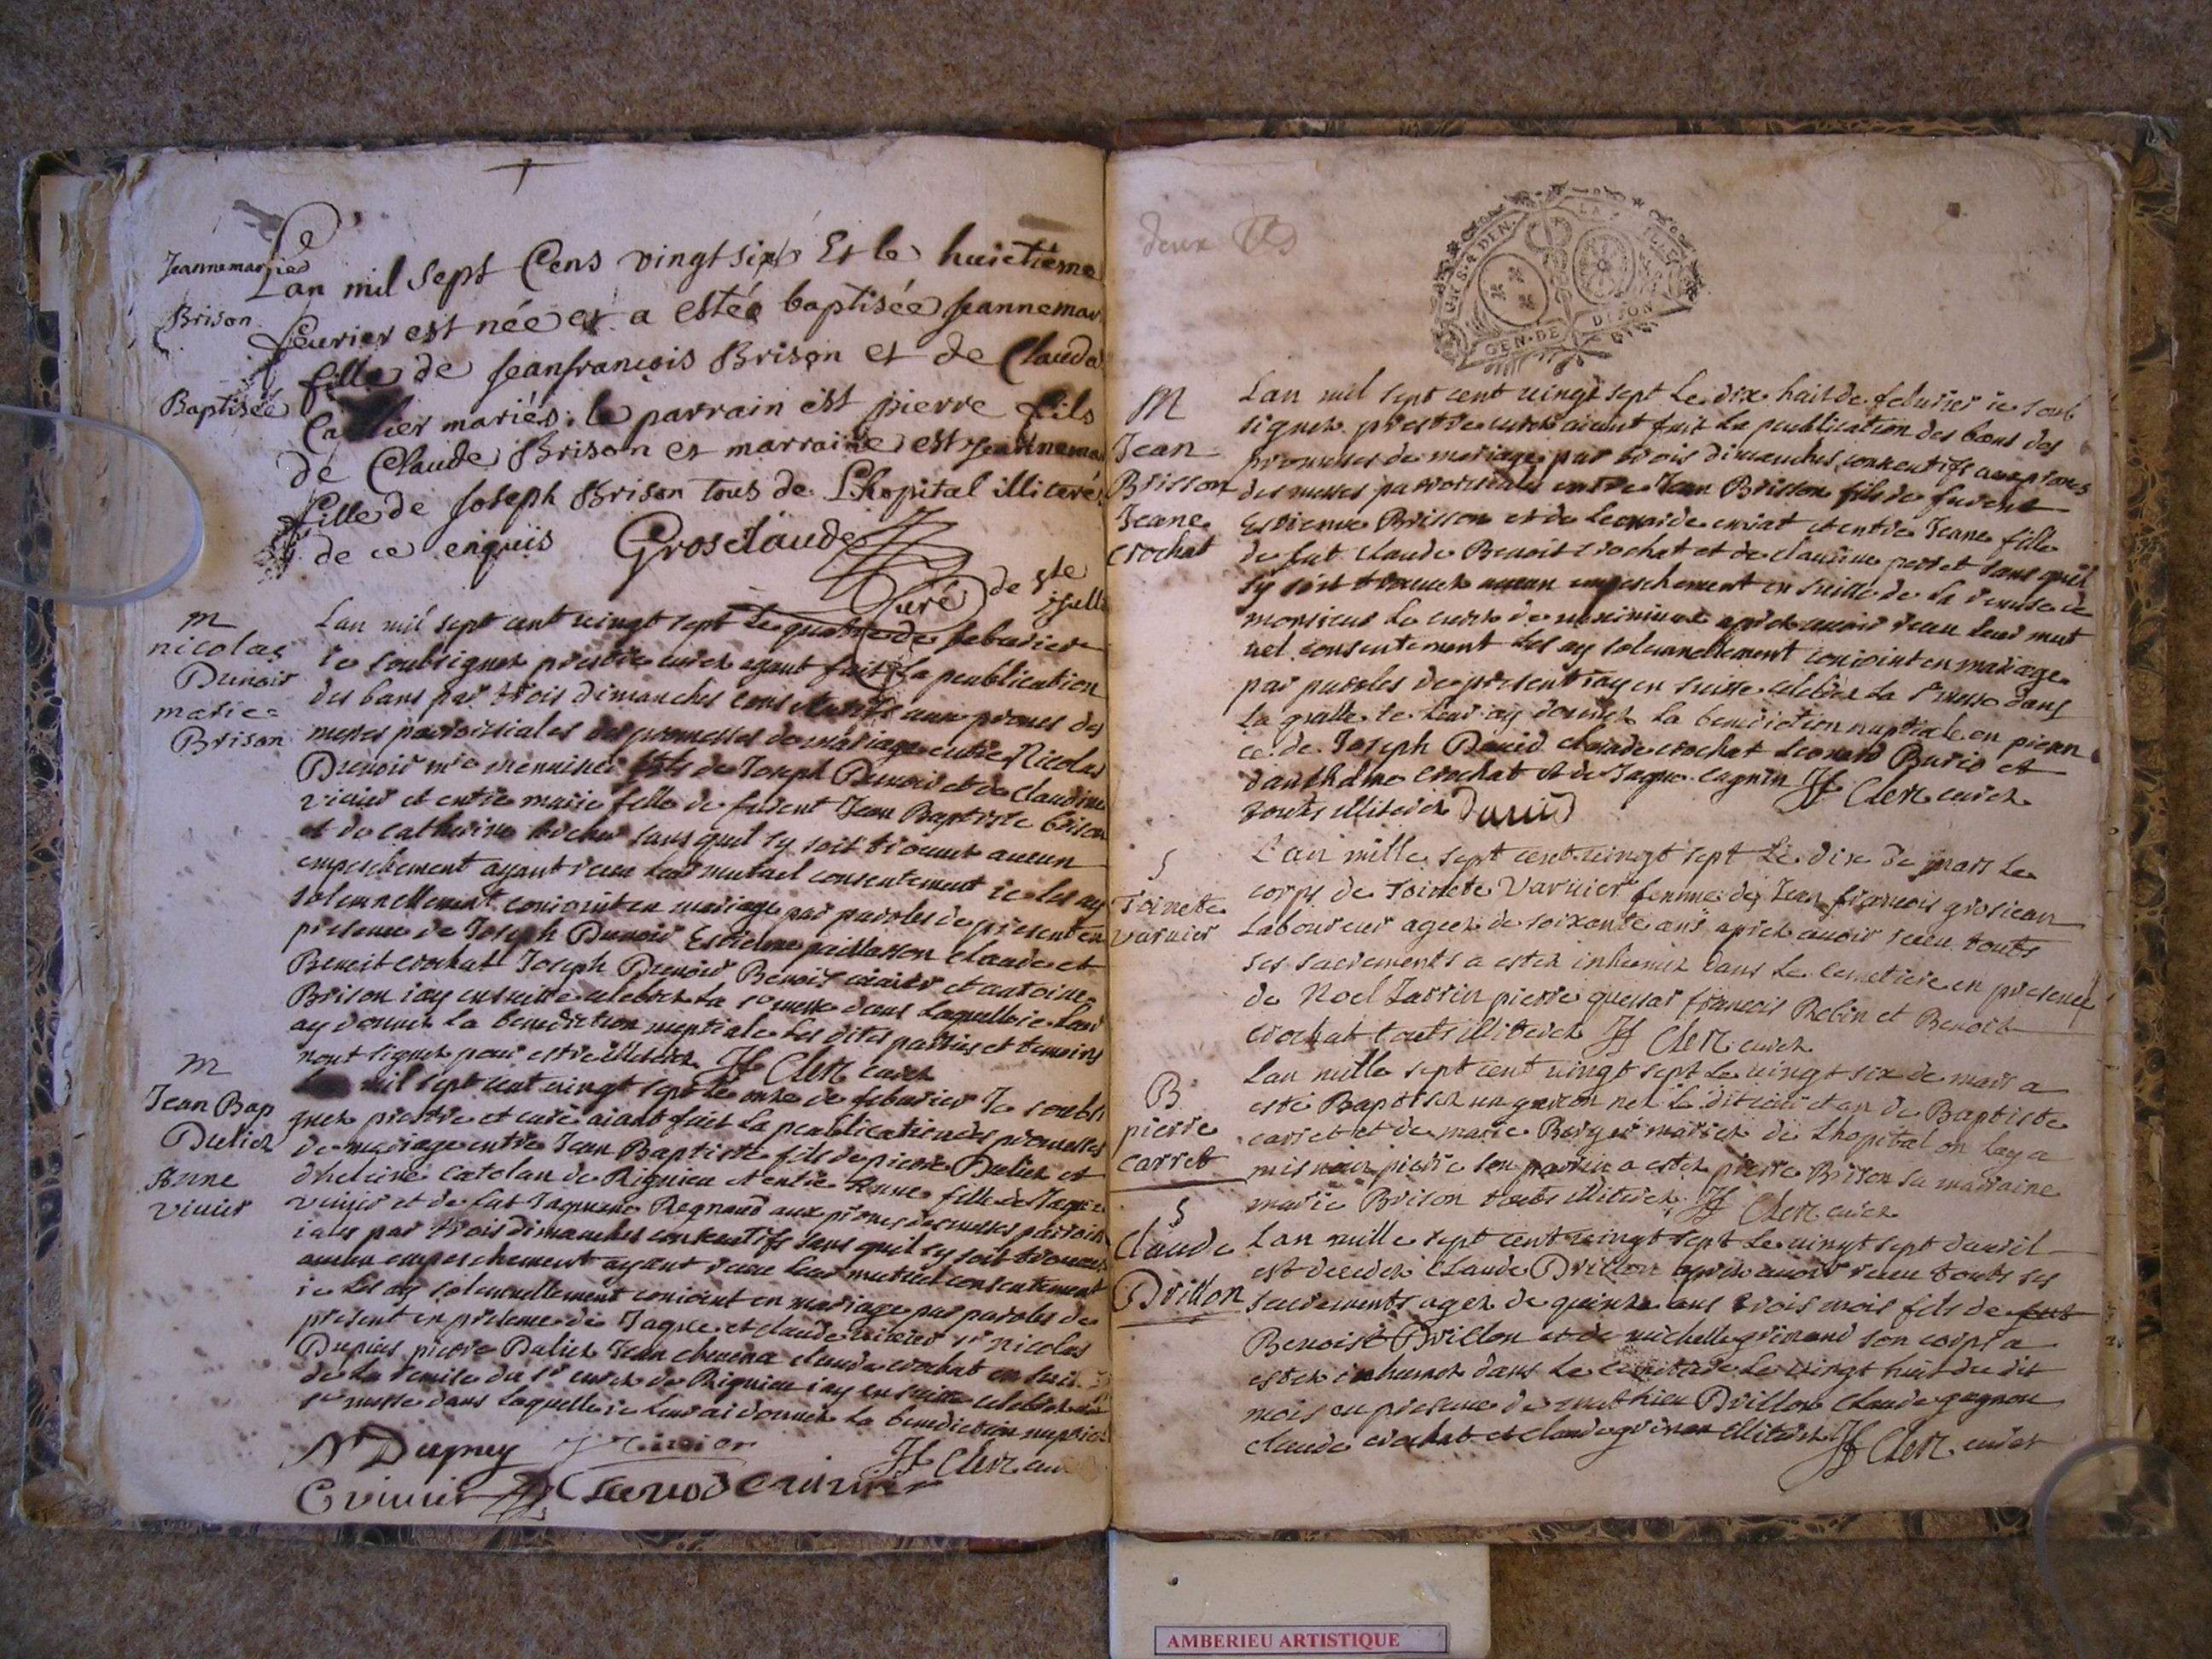 Jeannemarie
Brison
Baptisée
Lan mil sept Cens vingt six Et le huictiéme
feurier est née et a estée baptisée Jeannemar
fille de Jeanfrançois Brison et de Clauda
Ca lier mariés. le parrain est pierre fils
de Claude Brison et marraine est Jeannema
fille de Joseph Brison tous de Lhopital illiteré
de ce enquis Grosclaude
Curé de Ste
Julle
m
nicolas
Dunoir
marie
Brison
Lan mil sept cent vingt sept le quatre de febvrier
ie soubsigner prestre curer ayant fait La peublication
des bans par trois dimanches consecutifs aux prones des
messes parroissiales des promesses de mariage entre Nicolas
Dunoir mre menuisier fils de Joseph Dunoir et de claudine
vivier et entre marie fille de fudent Jean Baptiste brison
et de catherine sans quil sy soit trouvet aucun
empeschement ayant receu leur mutuel consentement ie les ay
solemnellement conioint en mariage par paroles de present en
presence de Joseph Dunoir Estienne paillasson claude et
Benoit crochat Joseph Dunoir Benoit vivier et antoine
Brison iay ensuitte celebrer la ste messe dans laquelle ie leur
ay donner la benediction nuptiale les dites parties et temoins
nont signer pour estre illiterer JF Clerc curer
m
Jean Bap
Dulier
Anne
vivier
mil sept cent vingt sept le onze de febvrier Je soubsi
gner prestre et curé aiant fait la peublication des promesses
de mariage entre Jean Baptiste fils de pierre Dulier et
dheleine catolan de Rignieu et entre Anne fille de Jaque
vivier et de fut Jaqueme Regnaud aux prones des messes parroiss
iales par trois dimanches consecutifs sans quil sy soit trouver
aucun empeschement ayant receu leur mutuel consentement
ie les ay solemnellement conioint en mariage par paroles de
present en presence de Jaque et claude vivier sr nicolas
Dupuis pierre Dulier Jean claude crochat en suite
de la remise du sr curer de Rignieu iay en suitte celebrer la
ste messe dans laquelle ie leur ai donner la benediction nuptial
N Dupuey vivier JF Clerc cu
C vivier
deux
GEN. DE DIJON
M
Jean
Brisson
Jeane
crochat
Lan mil sept cent vingt sept le dix huit de febvrier ie soub
signer prestre curer aiant fait la peublication des bans des
promesses de mariage par trois dimanches consecutifs aux prones
des messes parroissiales entre Jean Brisson fils de fudent
Estienne Brisson et de Leonarde et entre Jeane fille
de fut claude Benoit crochat et de claudine perret sans quil
sy soit trouver aucun empeschement en suitte de la remise de
monsieur le curer de apres avoir receu leur mut
uel consentement les ay solemnellement conioint en mariage
par paroles de present iay en suitte celebrer la ste messe dans
la quelle ie leur ay donner la benediction nuptiale en presen
ce de Joseph David claude crochat Leonard Buris et
danthelme crochat et de Jaque cagnin JF Clerc curer
touts illiterer David
S
Toinette
varnier
L'an mille sept cent vingt sept le dix de mars le
corps de Toinete varnier femme de Jean françois grosjean
laboureur ageer de soixante ans apres avoir receu touts
ses sacrements a ester inhumer dans le cemetiere en presence
de Noel Jarrin pierre quessar françois Robin et Benoit
crochat touts illiterer JF Clerc curer
B
pierre
carret
Lan mille sept cent vingt sept le vingt six de mars a
esté Baptiser un garcon ner le dit iour et an de Baptiste
carret et de marie Berger marier de Lhopital on lay a
mis nom pierre son parrin a ester pierre Brison sa marraine
marie Brison touts illiterer JF Clerc curer
S
Claude
Drillon
Lan mille sept cent vingt sept le vingt sept davril
est deceder Claude Drillon apres avoir receu touts ses
sacrements ager de quinze ans trois mois fils de fut
Benoist Drillon et de michelle grinand son corps a
ester inhumer dans le cemitiere le vingt huit du dit
mois en presence de mathieu Drillon claude gagnon
claude crochat et claude illiterer JF Clerc curer
AMBERIEU ARTISTIQUE